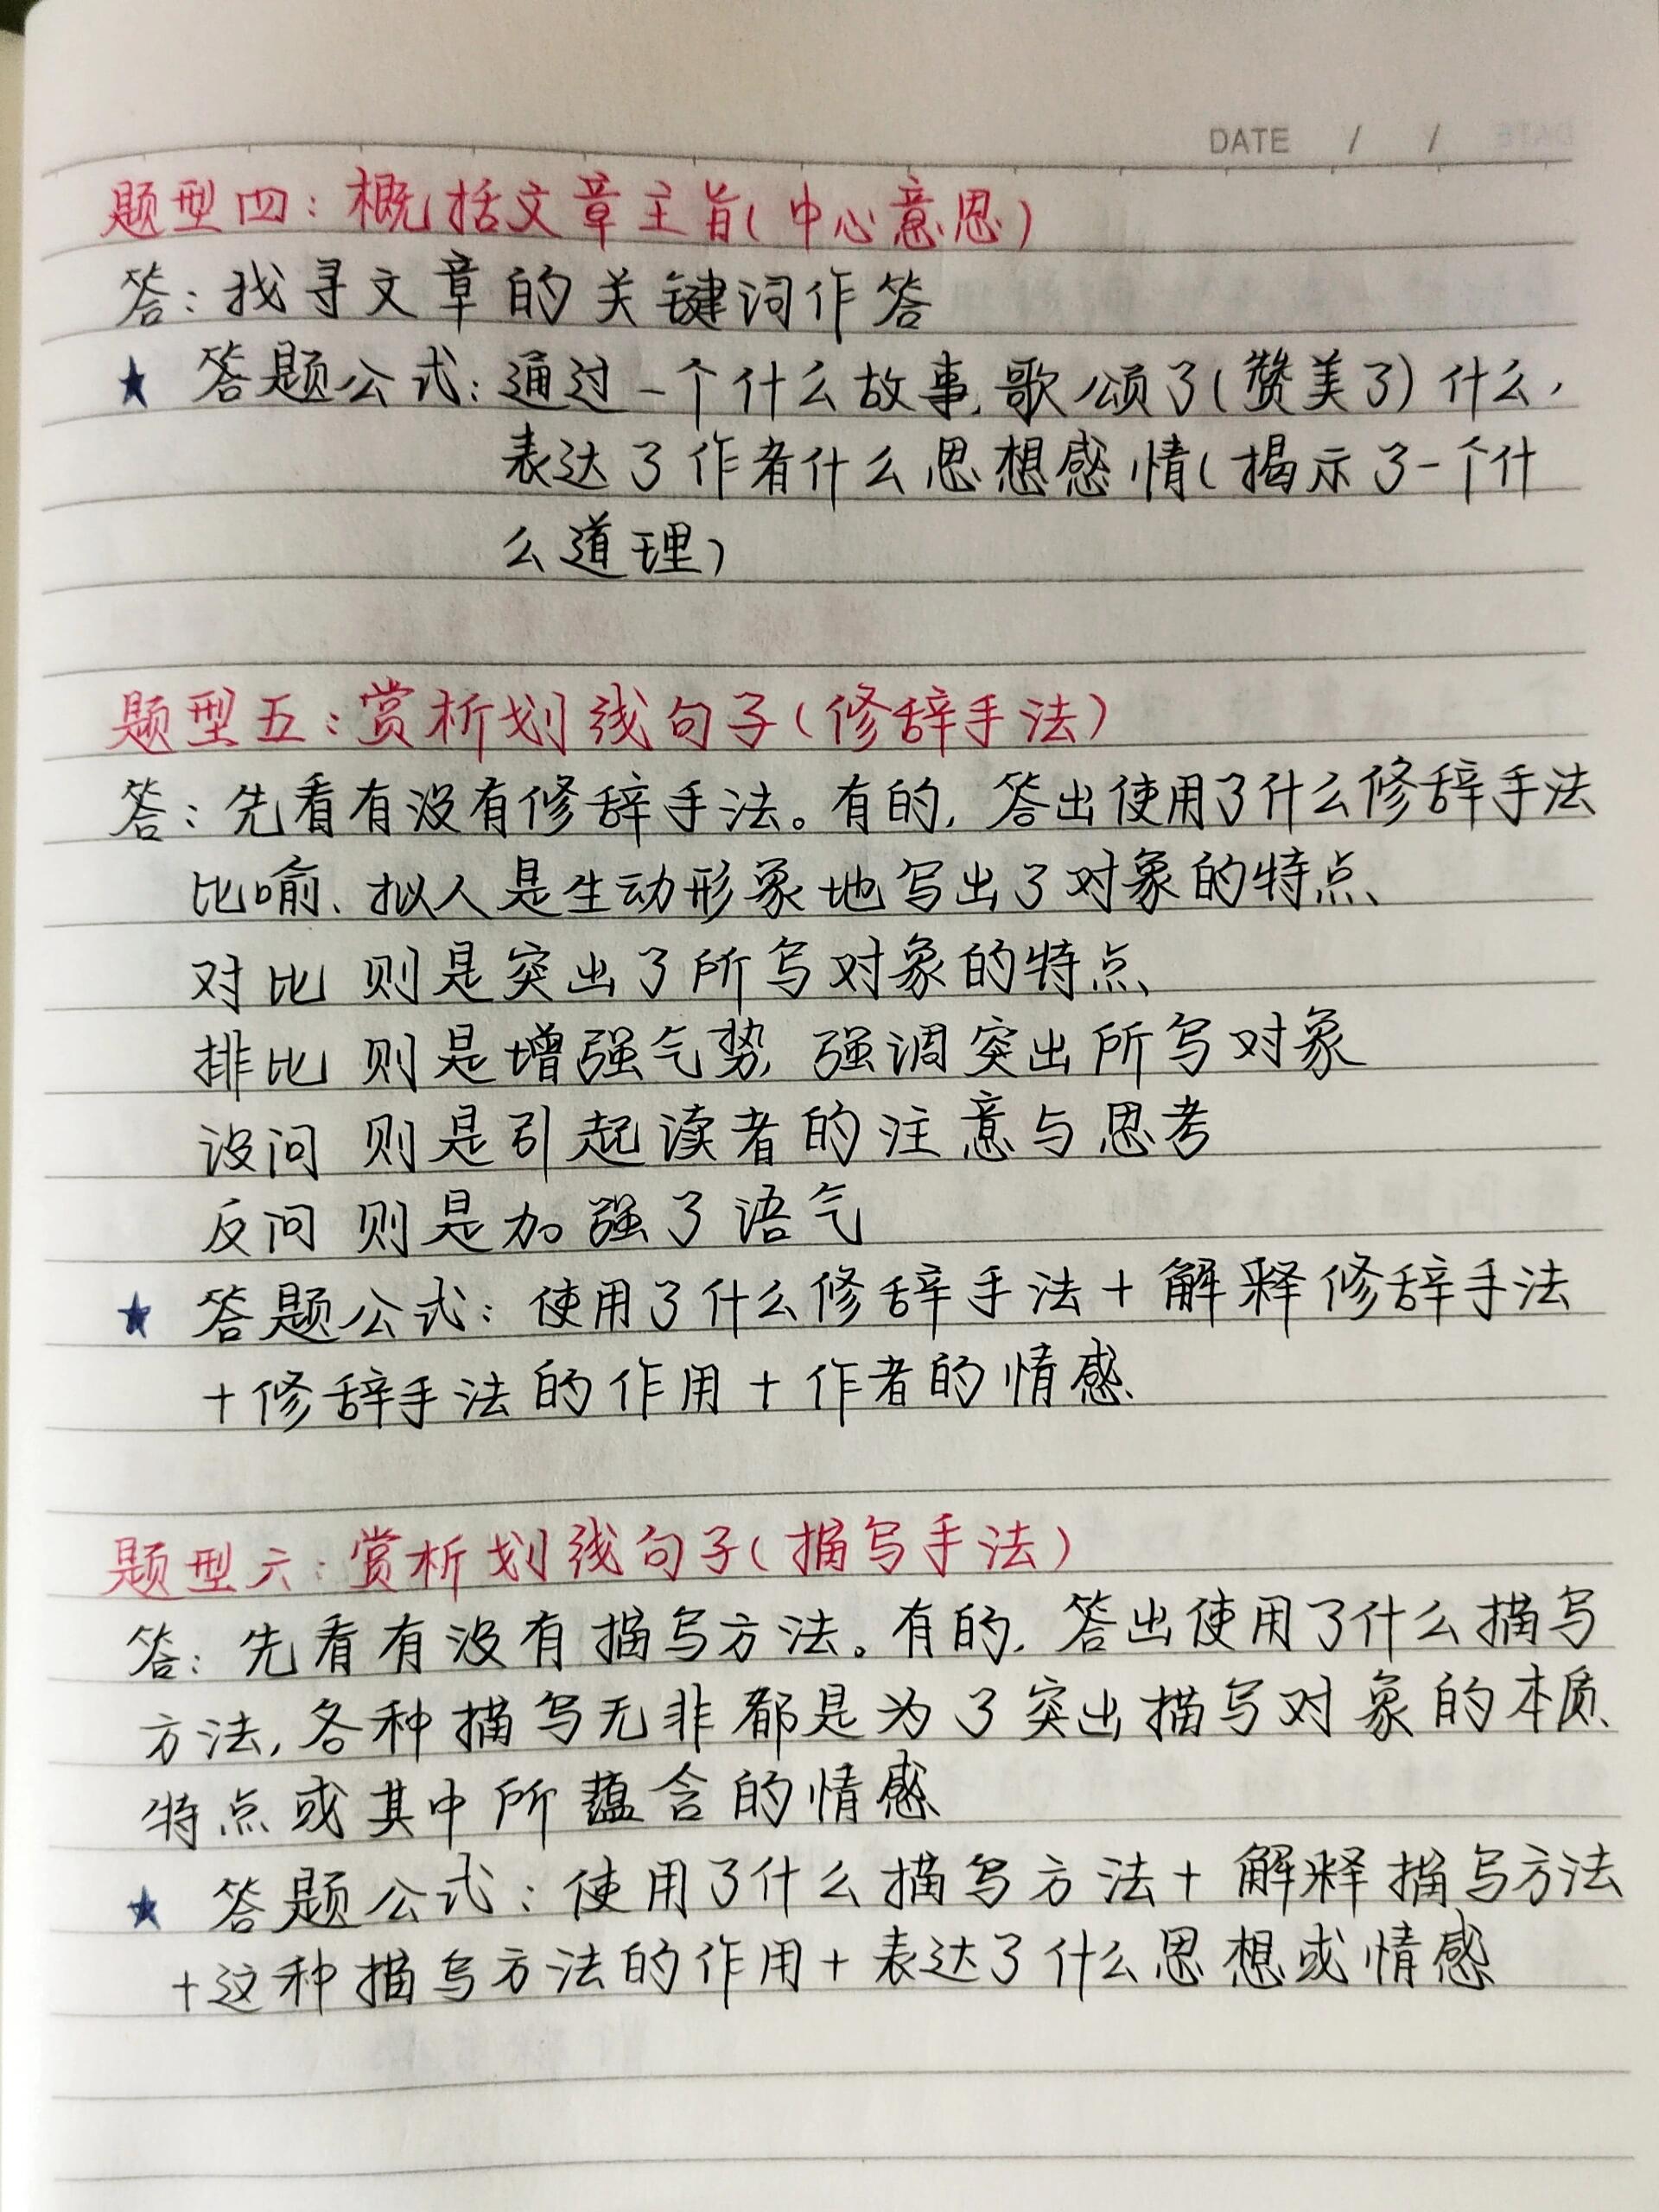 DATE / /
题型四：概括文章主旨(中心意思)
答：找寻文章的关键词作答
★ 答题公式：通过一个什么故事,歌颂了(赞美了)什么,
表达了作者什么思想感情(揭示了一个什
么道理)
题型五：赏析划线句子(修辞手法)
答：先看有没有修辞手法。有的,答出使用了什么修辞手法
比喻、拟人是生动形象地写出了对象的特点、
对比 则是突出了所写对象的特点、
排比 则是增强气势,强调突出所写对象
设问 则是引起读者的注意与思考
反问 则是加强了语气
★ 答题公式：使用了什么修辞手法+解释修辞手法
+修辞手法的作用+作者的情感
题型六：赏析划线句子(描写手法)
答：先看有没有描写方法。有的,答出使用了什么描写
方法,各种描写无非都是为了突出描写对象的本质、
特点或其中所蕴含的情感
★ 答题公式：使用了什么描写方法+解释描写方法
+这种描写方法的作用+表达了什么思想或情感